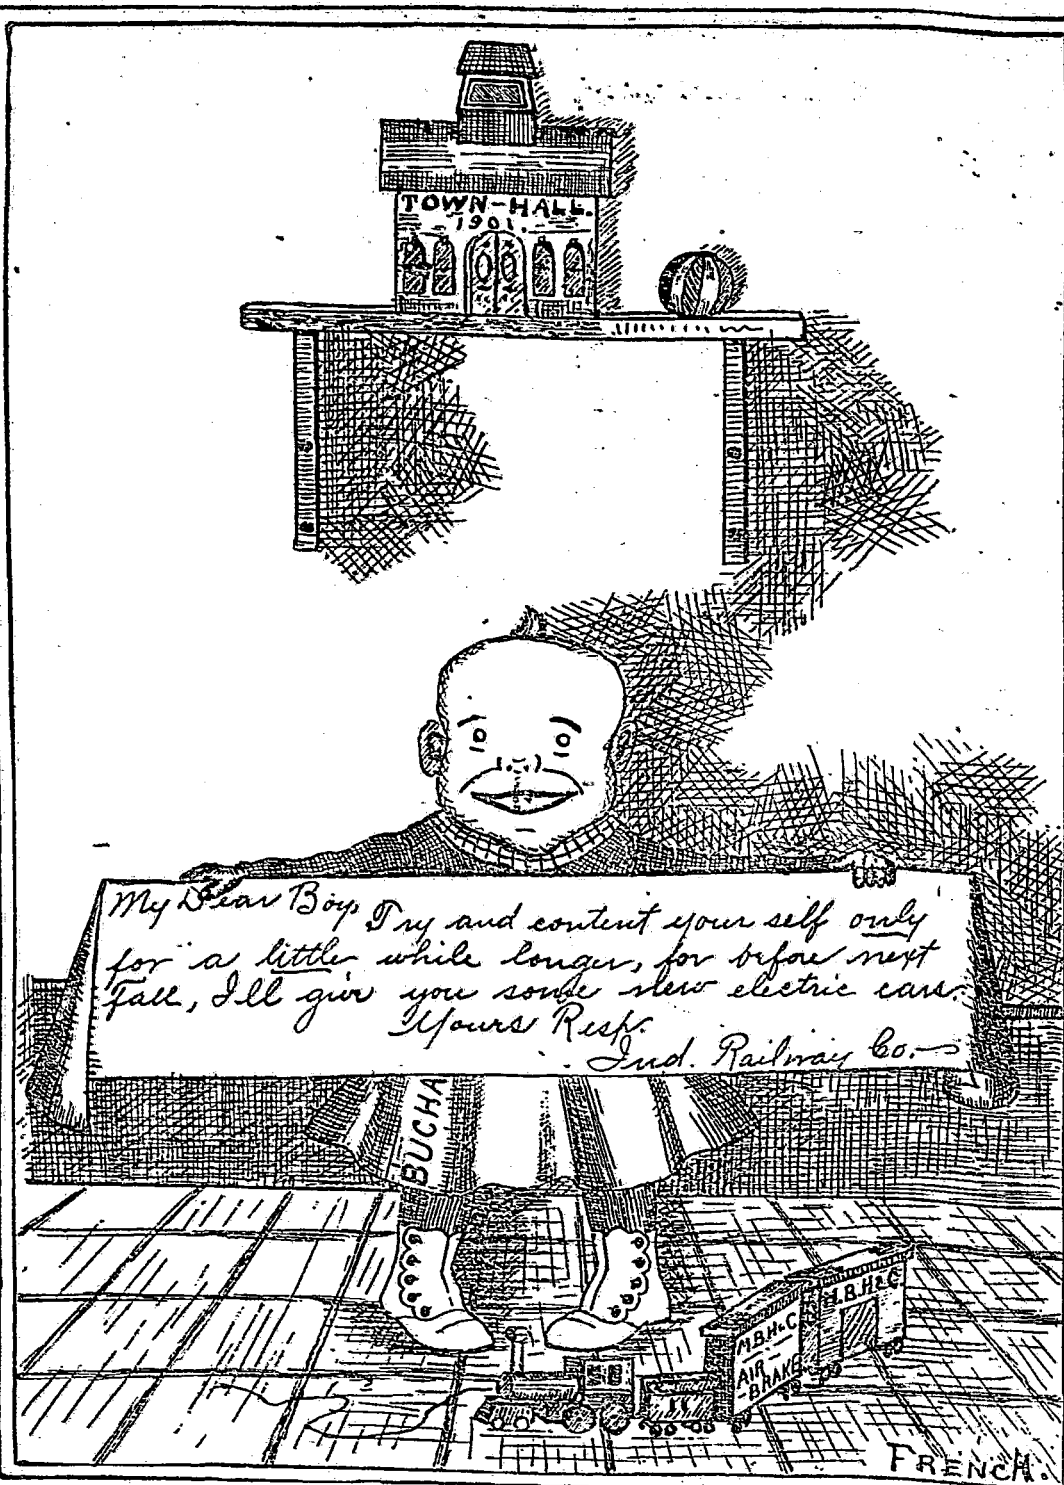 TOWN-HALL.
1901.
My Dear Boy, Try and content your self only
for a little while longer, for before next
Fall, I'll give you some new electric cars.
Yours Resp.
Ind. Railway Co.
BUCHA
M.B.H&C
AIR
BRAKE
M.B.H&C
11
FRENCH.